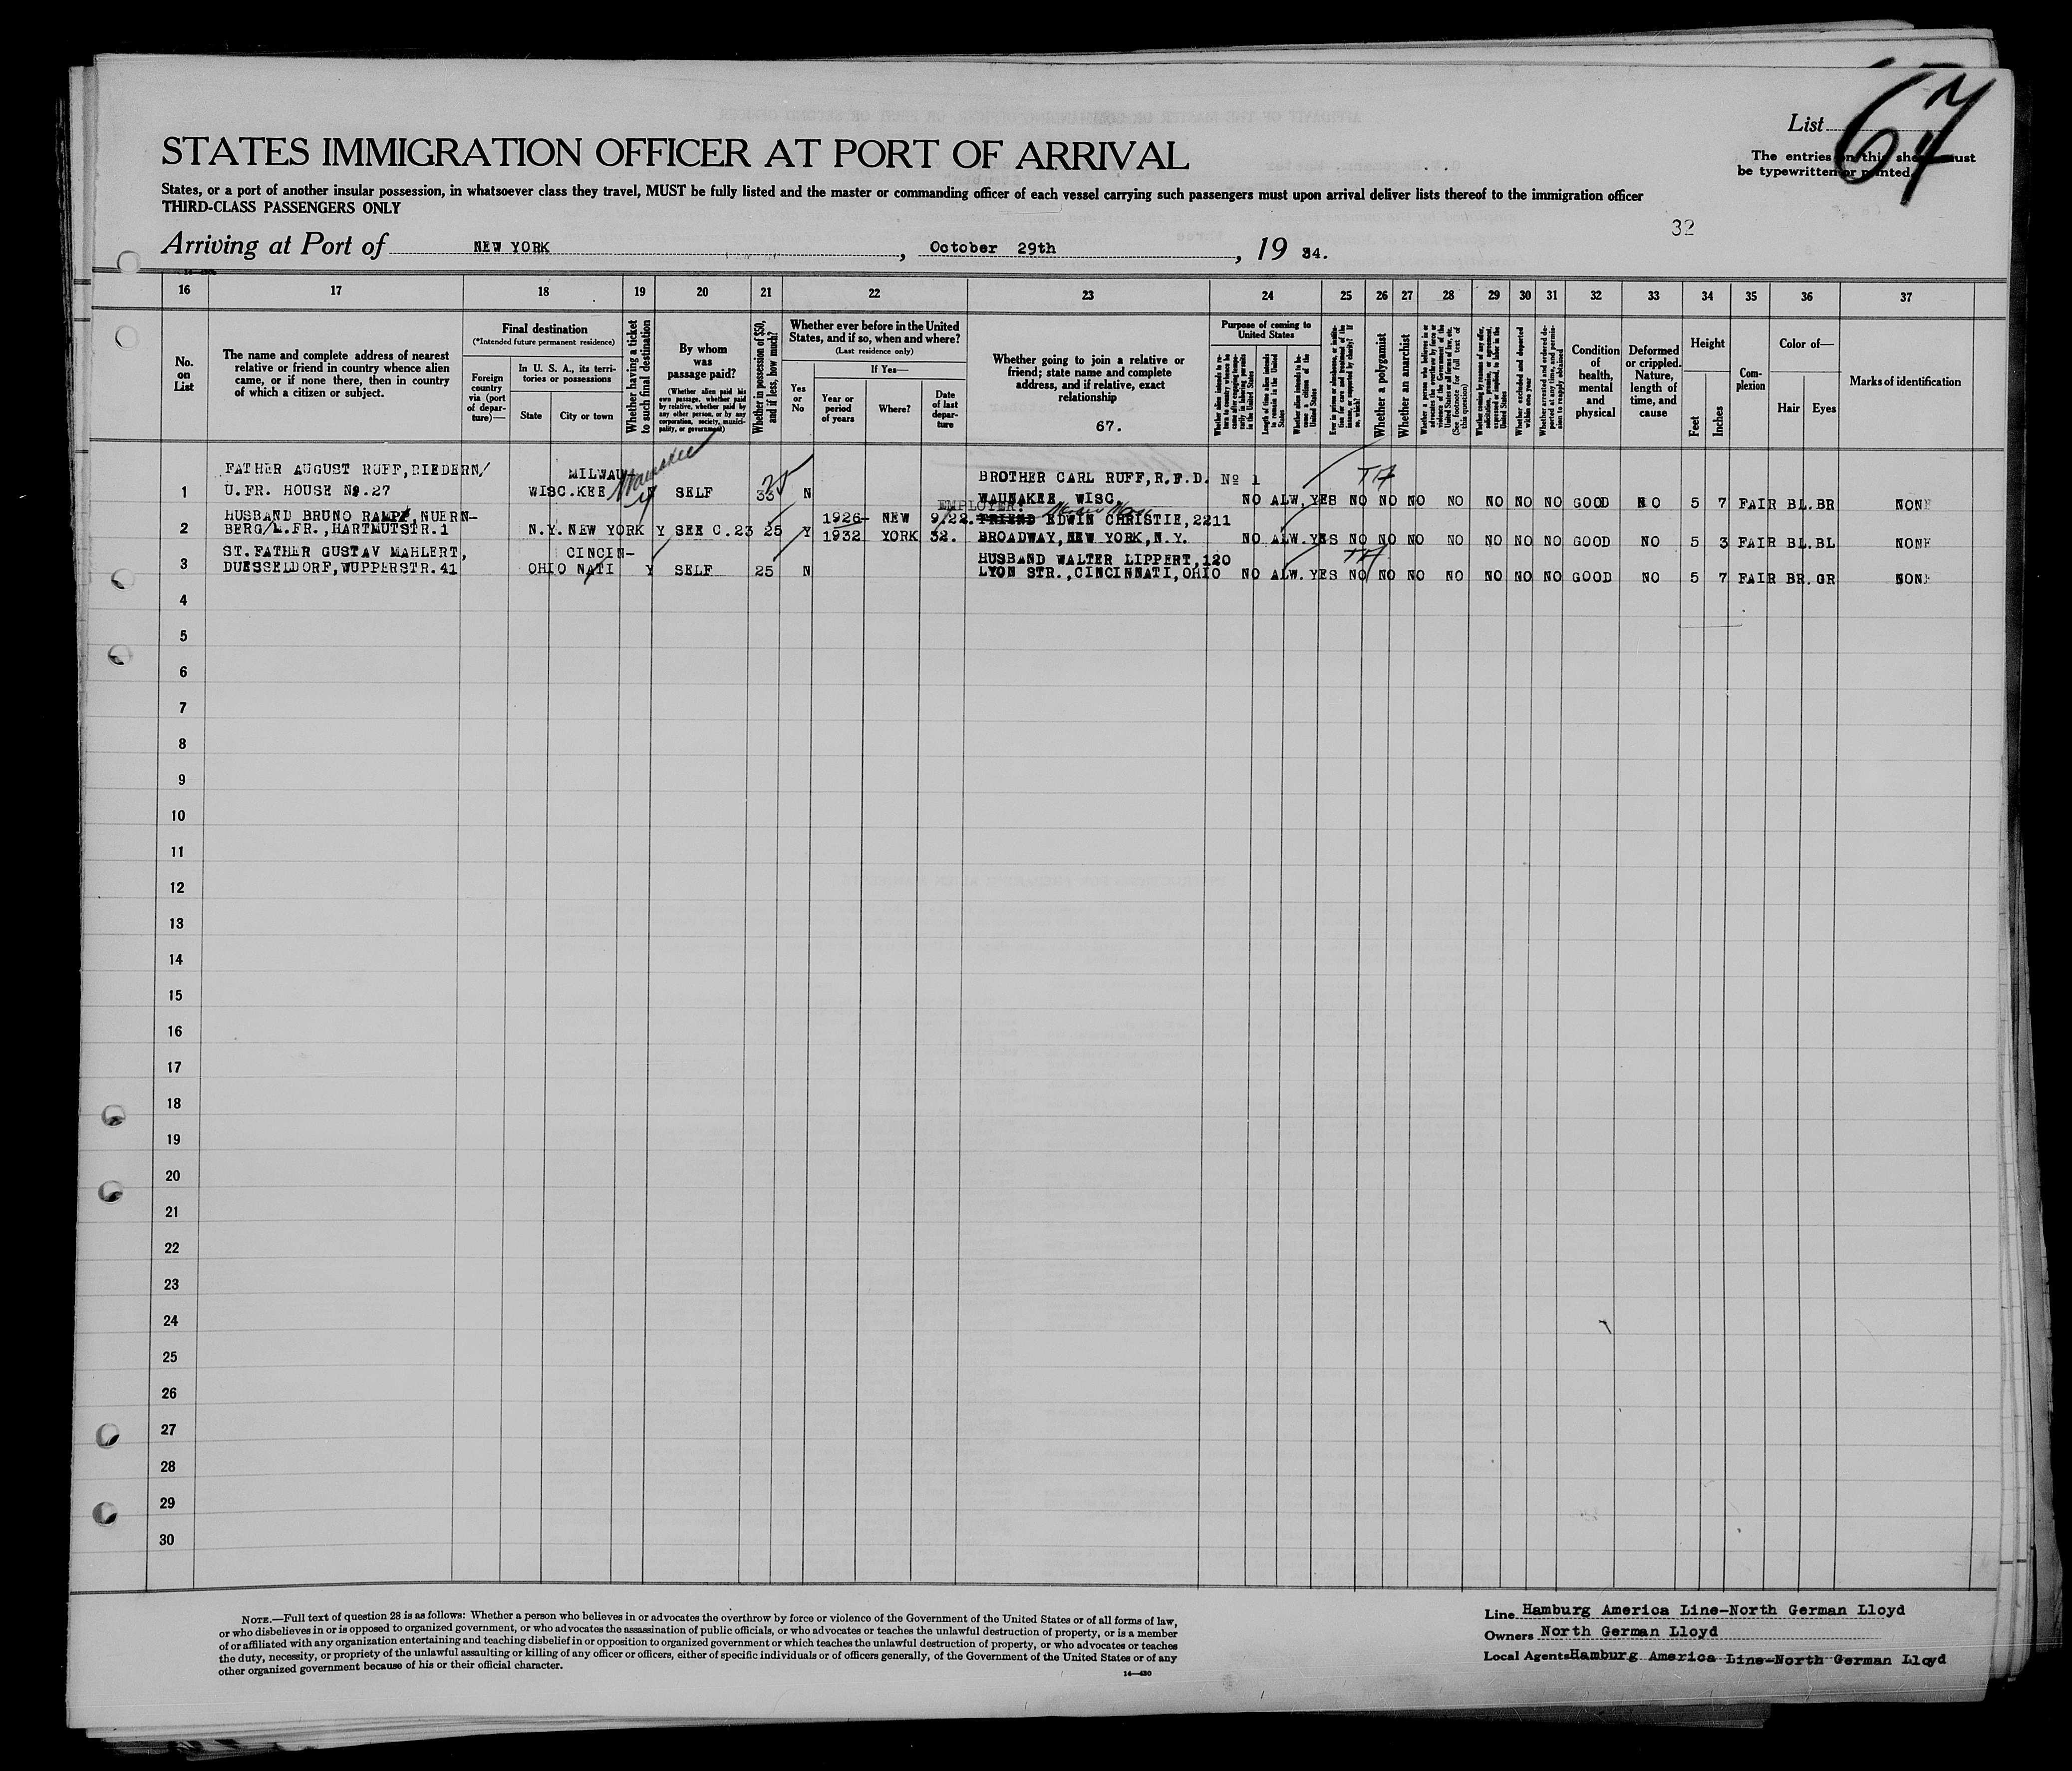 List 67
The entries on this sheet must
be typewritten or printed.
STATES IMMIGRATION OFFICER AT PORT OF ARRIVAL
States, or a port of another insular possession, in whatsoever class they travel, MUST be fully listed and the master or commanding officer of each vessel carrying such passengers must upon arrival deliver lists thereof to the immigration officer
THIRD-CLASS PASSENGERS ONLY
32
Arriving at Port of NEW YORK, October 29th, 19 34.
16 17 18 19 20 21 22 23 24 25 26 27 28 29 30 31 32 33 34 35 36 37
No. on List
The name and complete address of nearest
relative or friend in country whence alien
came, or if none there, then in country
of which a citizen or subject.
Final destination
(*Intended future permanent residence)
Foreign country via (port of departure)—
In U. S. A., its territories or possessions
State
City or town
Whether having a ticket to such final destination
By whom was passage paid?
(Whether alien paid his own passage, whether paid by relative, whether paid by any other person, or by any corporation, society, municipality, or government)
Whether in possession of $50, and if less, how much?
Whether ever before in the United States, and if so, when and where?
(Last residence only)
Yes or No
If Yes—
Year or period of years
Where?
Date of last departure
Whether going to join a relative or
friend; state name and complete
address, and if relative, exact
relationship
67.
Purpose of coming to United States
Whether alien intends to return to country whence he came after engaging temporarily in laboring pursuits in the United States
Length of time alien intends to remain in the United States
Whether alien intends to become a citizen of the United States
Ever in prison or almshouse, or institution for care and treatment of the insane, or supported by charity? If so, which?
Whether a polygamist
Whether an anarchist
Whether a person who believes in or advocates the overthrow by force or violence of the Government of the United States or all forms of law, etc. (See footnote for full text of this question)
Whether coming by reason of any offer, solicitation, promise, or agreement, expressed or implied, to labor in the United States
Whether excluded and deported within one year
Whether arrested and ordered deported at any time, and permission to reapply obtained
Condition of health, mental and physical
Deformed or crippled. Nature, length of time, and cause
Height
Feet
Inches
Complexion
Color of—
Hair
Eyes
Marks of identification
FATHER AUGUST RUFF, RIEDERN/ MILWAU Waunakee 25 BROTHER CARL RUFF, R.F.D. Nº 1 TH
1 U.FR. HOUSE No.27 WISC. KEE Y SELF 35 N WAUNAKEE, WISC. NO ALW. YES NO NO NO NO NO NO NO GOOD NO 5 7 FAIR BL. BR NONE
EMPLOYER:
HUSBAND BRUNO RAMPF, NUERN- 1926- NEW 9/22. FRIEND EDWIN CHRISTIE, 2211
2 BERG/M.FR., HARTMUTSTR.1 N.Y. NEW YORK Y SEE C.23 25 Y 1932 YORK 32. BROADWAY, NEW YORK, N.Y. NO ALW. YES NO NO NO NO NO NO NO GOOD NO 5 3 FAIR BL. BL NONE
ST.FATHER GUSTAV MAHLERT, CINCIN- HUSBAND WALTER LIPPERT, 120 TH
3 DUESSELDORF, WUPPERSTR.41 OHIO NATI Y SELF 25 N LYON STR., CINCINNATI, OHIO NO ALW. YES NO NO NO NO NO NO NO GOOD NO 5 7 FAIR BR. GR NONE
4
5
6
7
8
9
10
11
12
13
14
15
16
17
18
19
20
21
22
23
24
25
26
27
28
29
30
NOTE.—Full text of question 28 is as follows: Whether a person who believes in or advocates the overthrow by force or violence of the Government of the United States or of all forms of law,
or who disbelieves in or is opposed to organized government, or who advocates the assassination of public officials, or who advocates or teaches the unlawful destruction of property, or is a member
of or affiliated with any organization entertaining and teaching disbelief in or opposition to organized government or which teaches the unlawful destruction of property, or who advocates or teaches
the duty, necessity, or propriety of the unlawful assaulting or killing of any officer or officers, either of specific individuals or of officers generally, of the Government of the United States or of any
other organized government because of his or their official character.
14—430
Line Hamburg America Line-North German Lloyd
Owners North German Lloyd
Local Agents Hamburg America Line-North German Lloyd